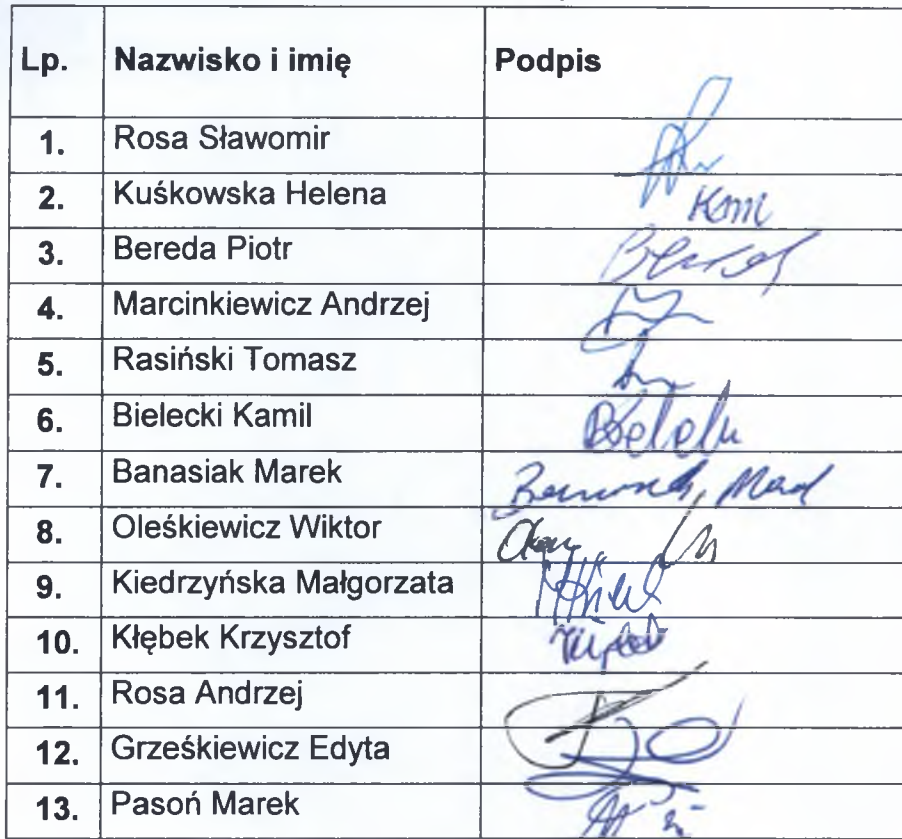 Lp. Nazwisko i imię Podpis
1. Rosa Sławomir
2. Kuśkowska Helena
3. Bereda Piotr
4. Marcinkiewicz Andrzej
5. Rasiński Tomasz
6. Bielecki Kamil
7. Banasiak Marek
8. Oleśkiewicz Wiktor
9. Kiedrzyńska Małgorzata
10. Kłębek Krzysztof
11. Rosa Andrzej
12. Grześkiewicz Edyta
13. Pasoń Marek